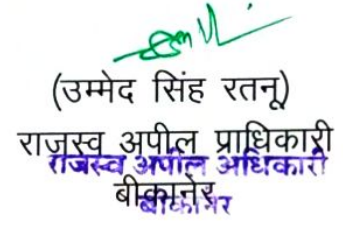 (उम्मेद सिंह रतनू)
राजस्व अपील प्राधिकारी
राजस्व अपील अधिकारी
बीकानेर
बीकानेर